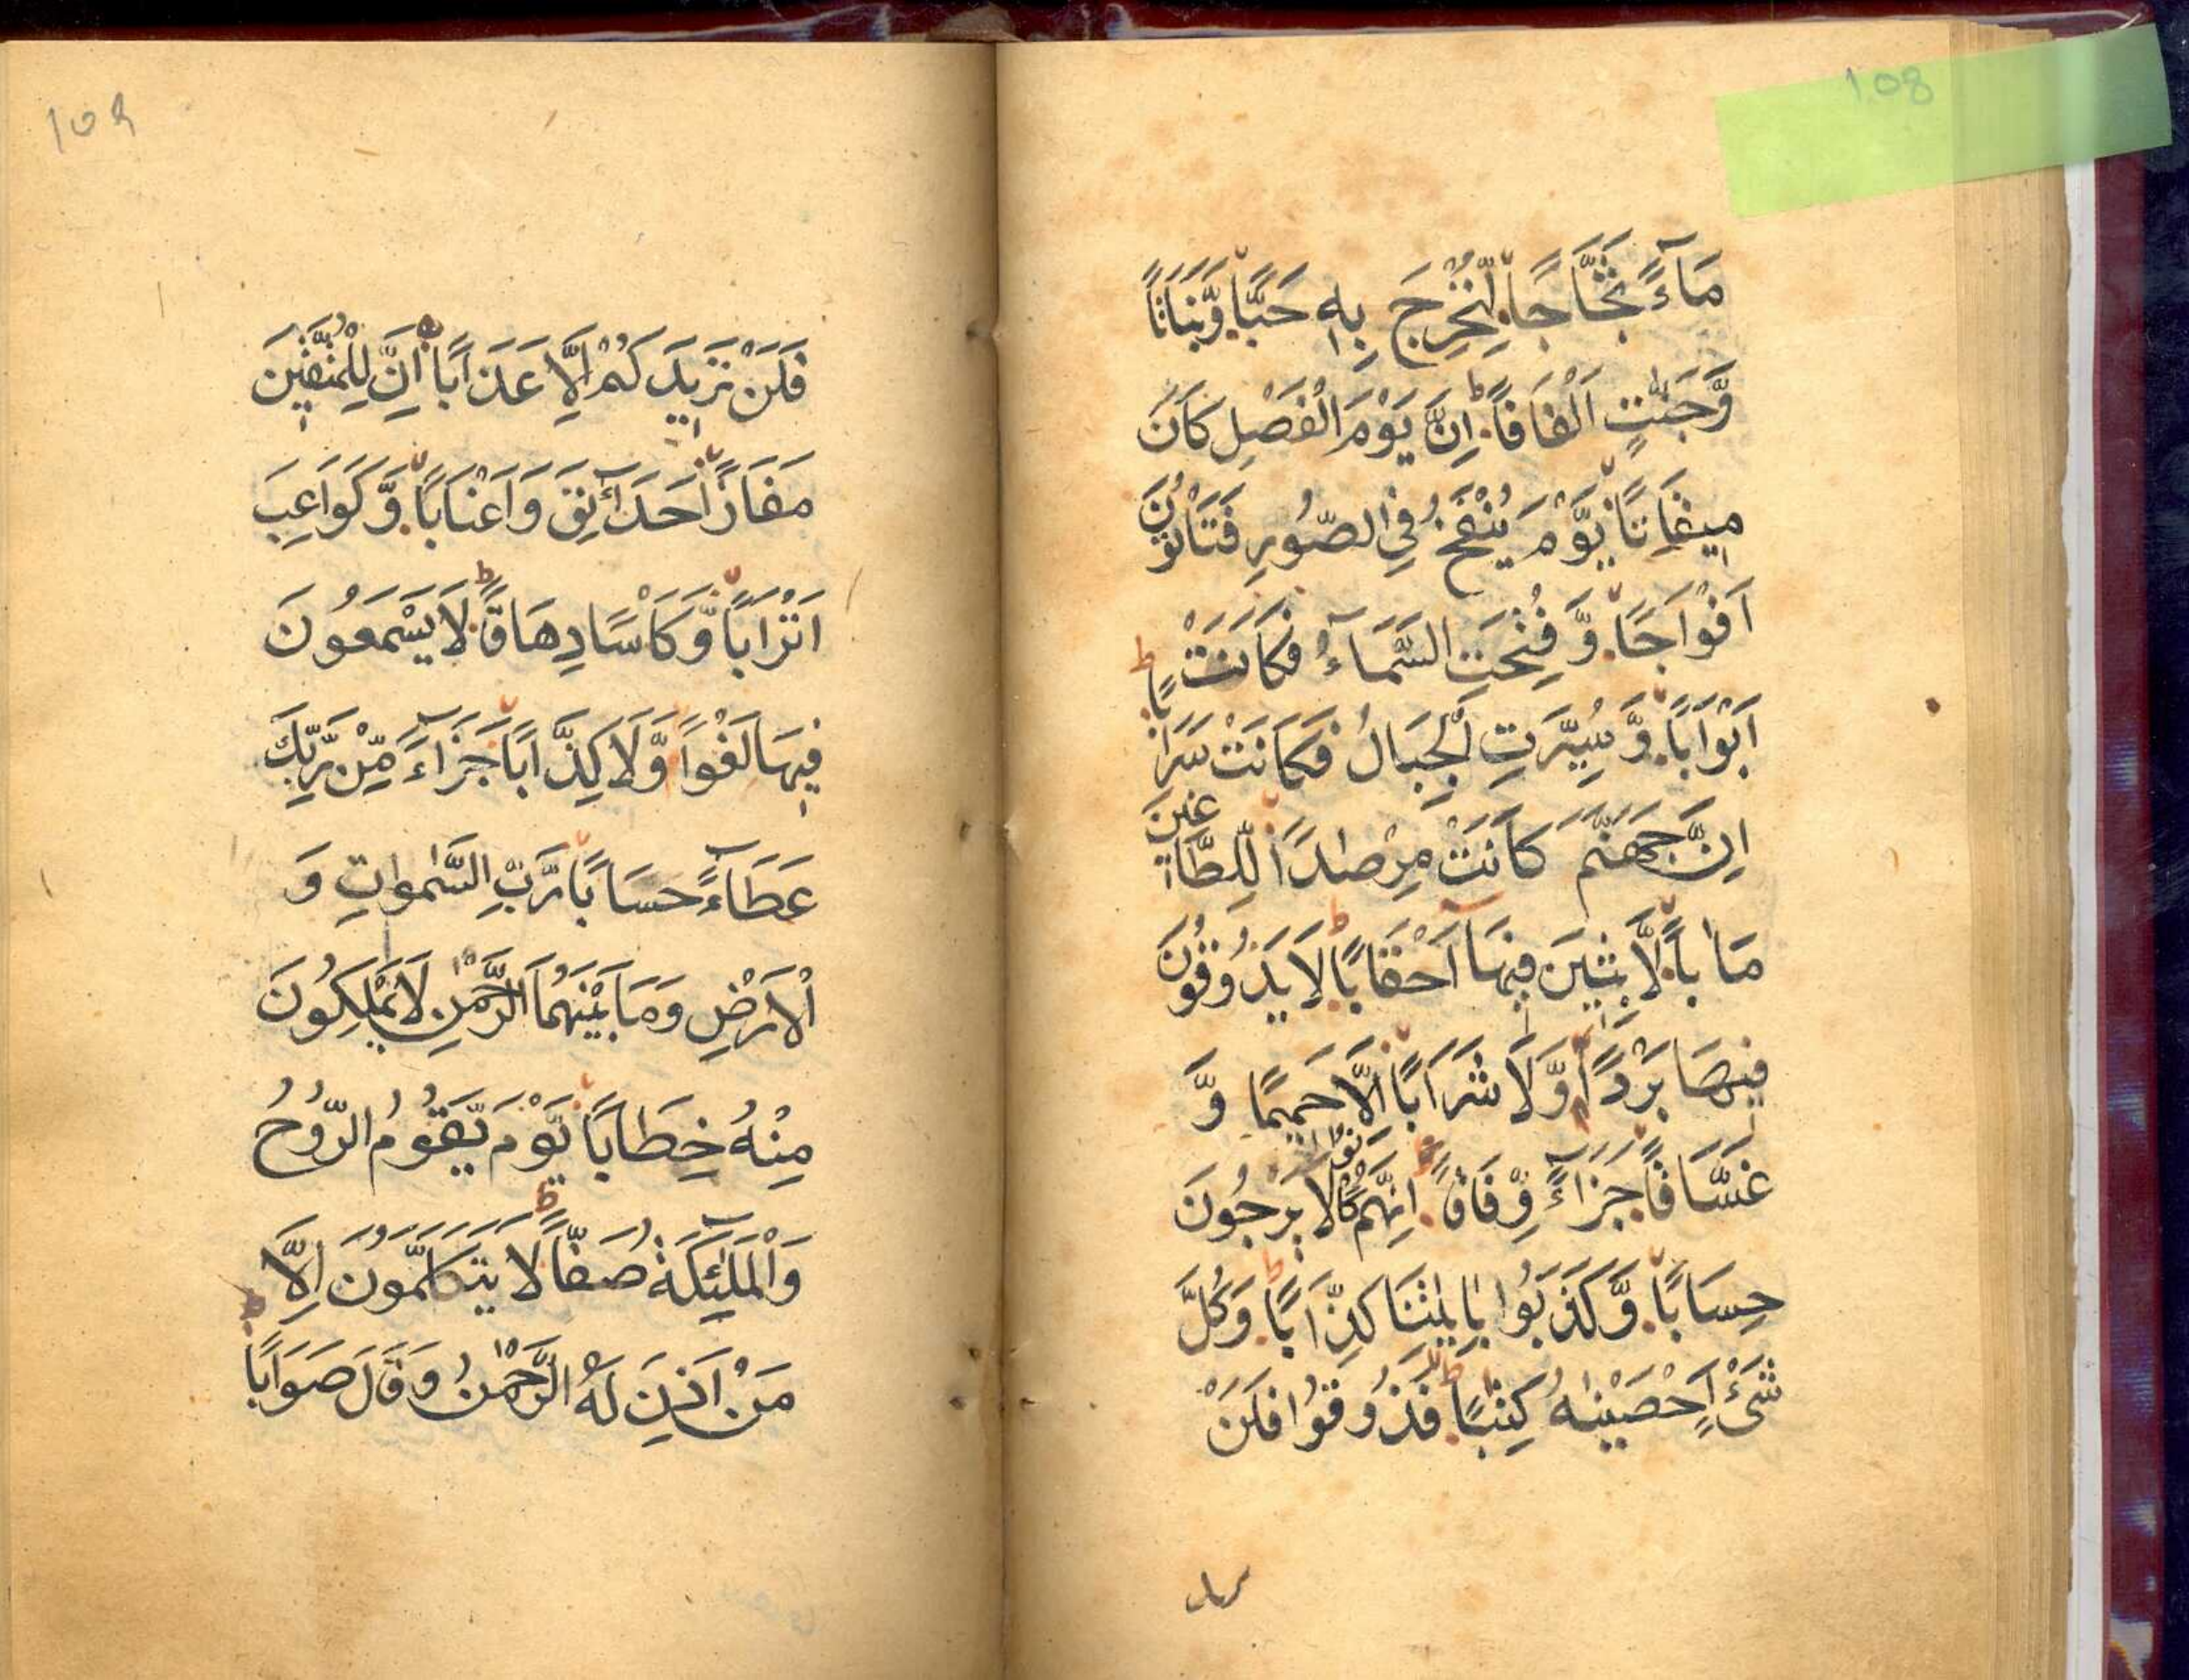 108
مَآءً ثَجَّاجًا لِّنُخْرِجَ بِهٖ حَبًّا وَّنَبَاتًا
وَّجَنّٰتٍ اَلْفَافًا اِنَّ يَوْمَ الْفَصْلِ كَانَ
مِيقَاتًا يَّوْمَ يُنْفَخُ فِي الصُّورِ فَتَاْتُوْنَ
اَفْوَاجًا وَّ فُتِحَتِ السَّمَآءُ فَكَانَتْ
اَبْوَابًا وَّ سُيِّرَتِ الْجِبَالُ فَكَانَتْ سَرَابًا
اِنَّ جَهَنَّمَ كَانَتْ مِرْصَادًا لِّلطَّاغِيْنَ
مَاٰبًا لّٰبِثِيْنَ فِيهَآ اَحْقَابًا لَا يَذُوقُوْنَ
فِيْهَا بَرْدًا وَّلَا شَرَابًا اِلَّا حَمِيْمًا وَّ
غَسَّاقًا جَزَآءً وِّفَاقًا اِنَّهُمْ كَانُوْا لَا يَرْجُوْنَ
حِسَابًا وَّ كَذَّبُوْا بِاٰيٰتِنَا كِذَّابًا وَكُلَّ
شَيْءٍ اَحْصَيْنٰهُ كِتٰبًا فَذُوْقُوْا فَلَنْ
109
فَلَنْ نَزِيْدَكُمْ اِلَّا عَذَابًا اِنَّ لِلْمُتَّقِيْنَ
مَفَازًا حَدَآئِقَ وَاَعْنَابًا وَّ كَوَاعِبَ
اَتْرَابًا وَّ كَاْسًا دِهَاقًا لَا يَسْمَعُوْنَ
فِيْهَا لَغْوًا وَّلَا كِذَّابًا جَزَآءً مِّنْ رَّبِّكَ
عَطَآءً حِسَابًا رَّبِّ السَّمٰوٰتِ وَ
الْاَرْضِ وَمَا بَيْنَهُمَا الرَّحْمٰنِ لَا يَمْلِكُوْنَ
مِنْهُ خِطَابًا يَّوْمَ يَقُوْمُ الرُّوْحُ
وَالْمَلٰٓئِكَةُ صَفًّا لَا يَتَكَلَّمُوْنَ اِلَّا
مَنْ اَذِنَ لَهُ الرَّحْمٰنُ وَقَالَ صَوَابًا